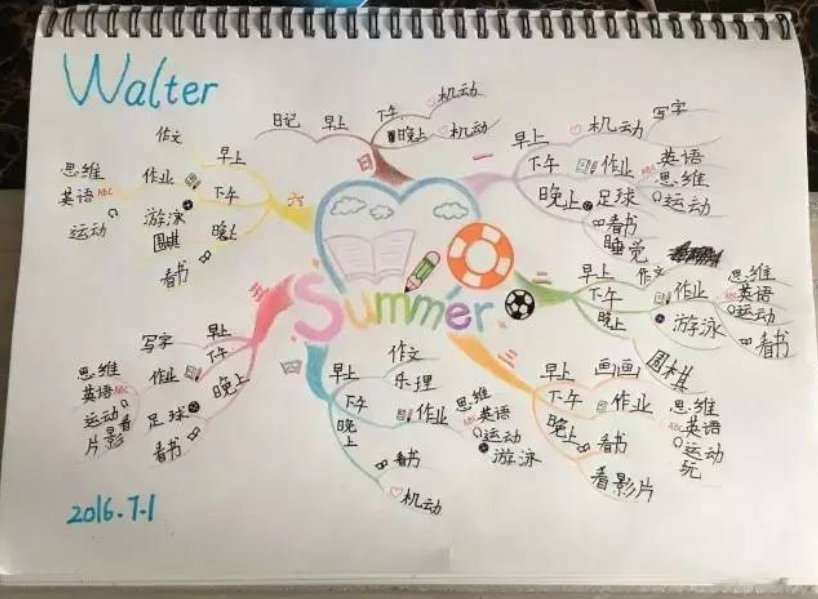 Walter
Summer
一
早上
机动
写字
下午
作业
英语
思维
运动
晚上
足球
看书
睡觉
二
早上
作文
下午
作业
思维
英语
运动
晚上
游泳
看书
围棋
三
早上
画画
下午
作业
思维
英语
运动
玩
晚上
看书
看影片
四
早上
作文
乐理
下午
作业
思维
英语
运动
游泳
晚上
看书
机动
五
早上
写字
下午
作业
思维
英语
运动
看影片
晚上
足球
看书
六
早上
作文
下午
作业
思维
英语
运动
游泳
围棋
晚上
看书
日
早上
日记
下午
机动
晚上
机动
2016.7.1